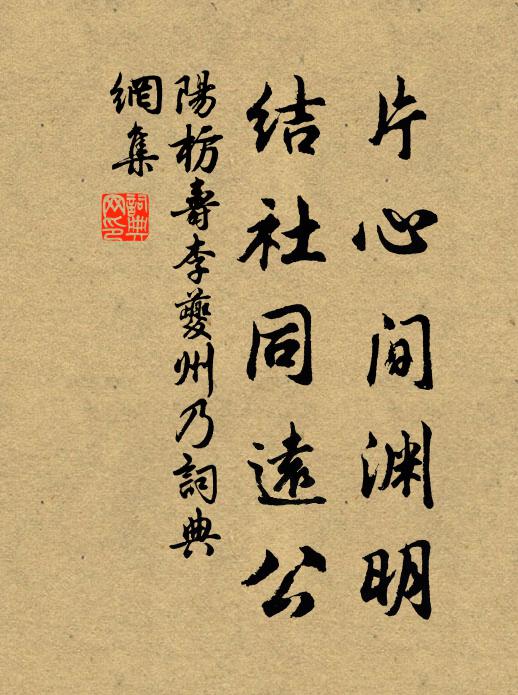 片心间渊明
结社同遠公
陽枋壽李夔州乃詞典
網集
詞典网印